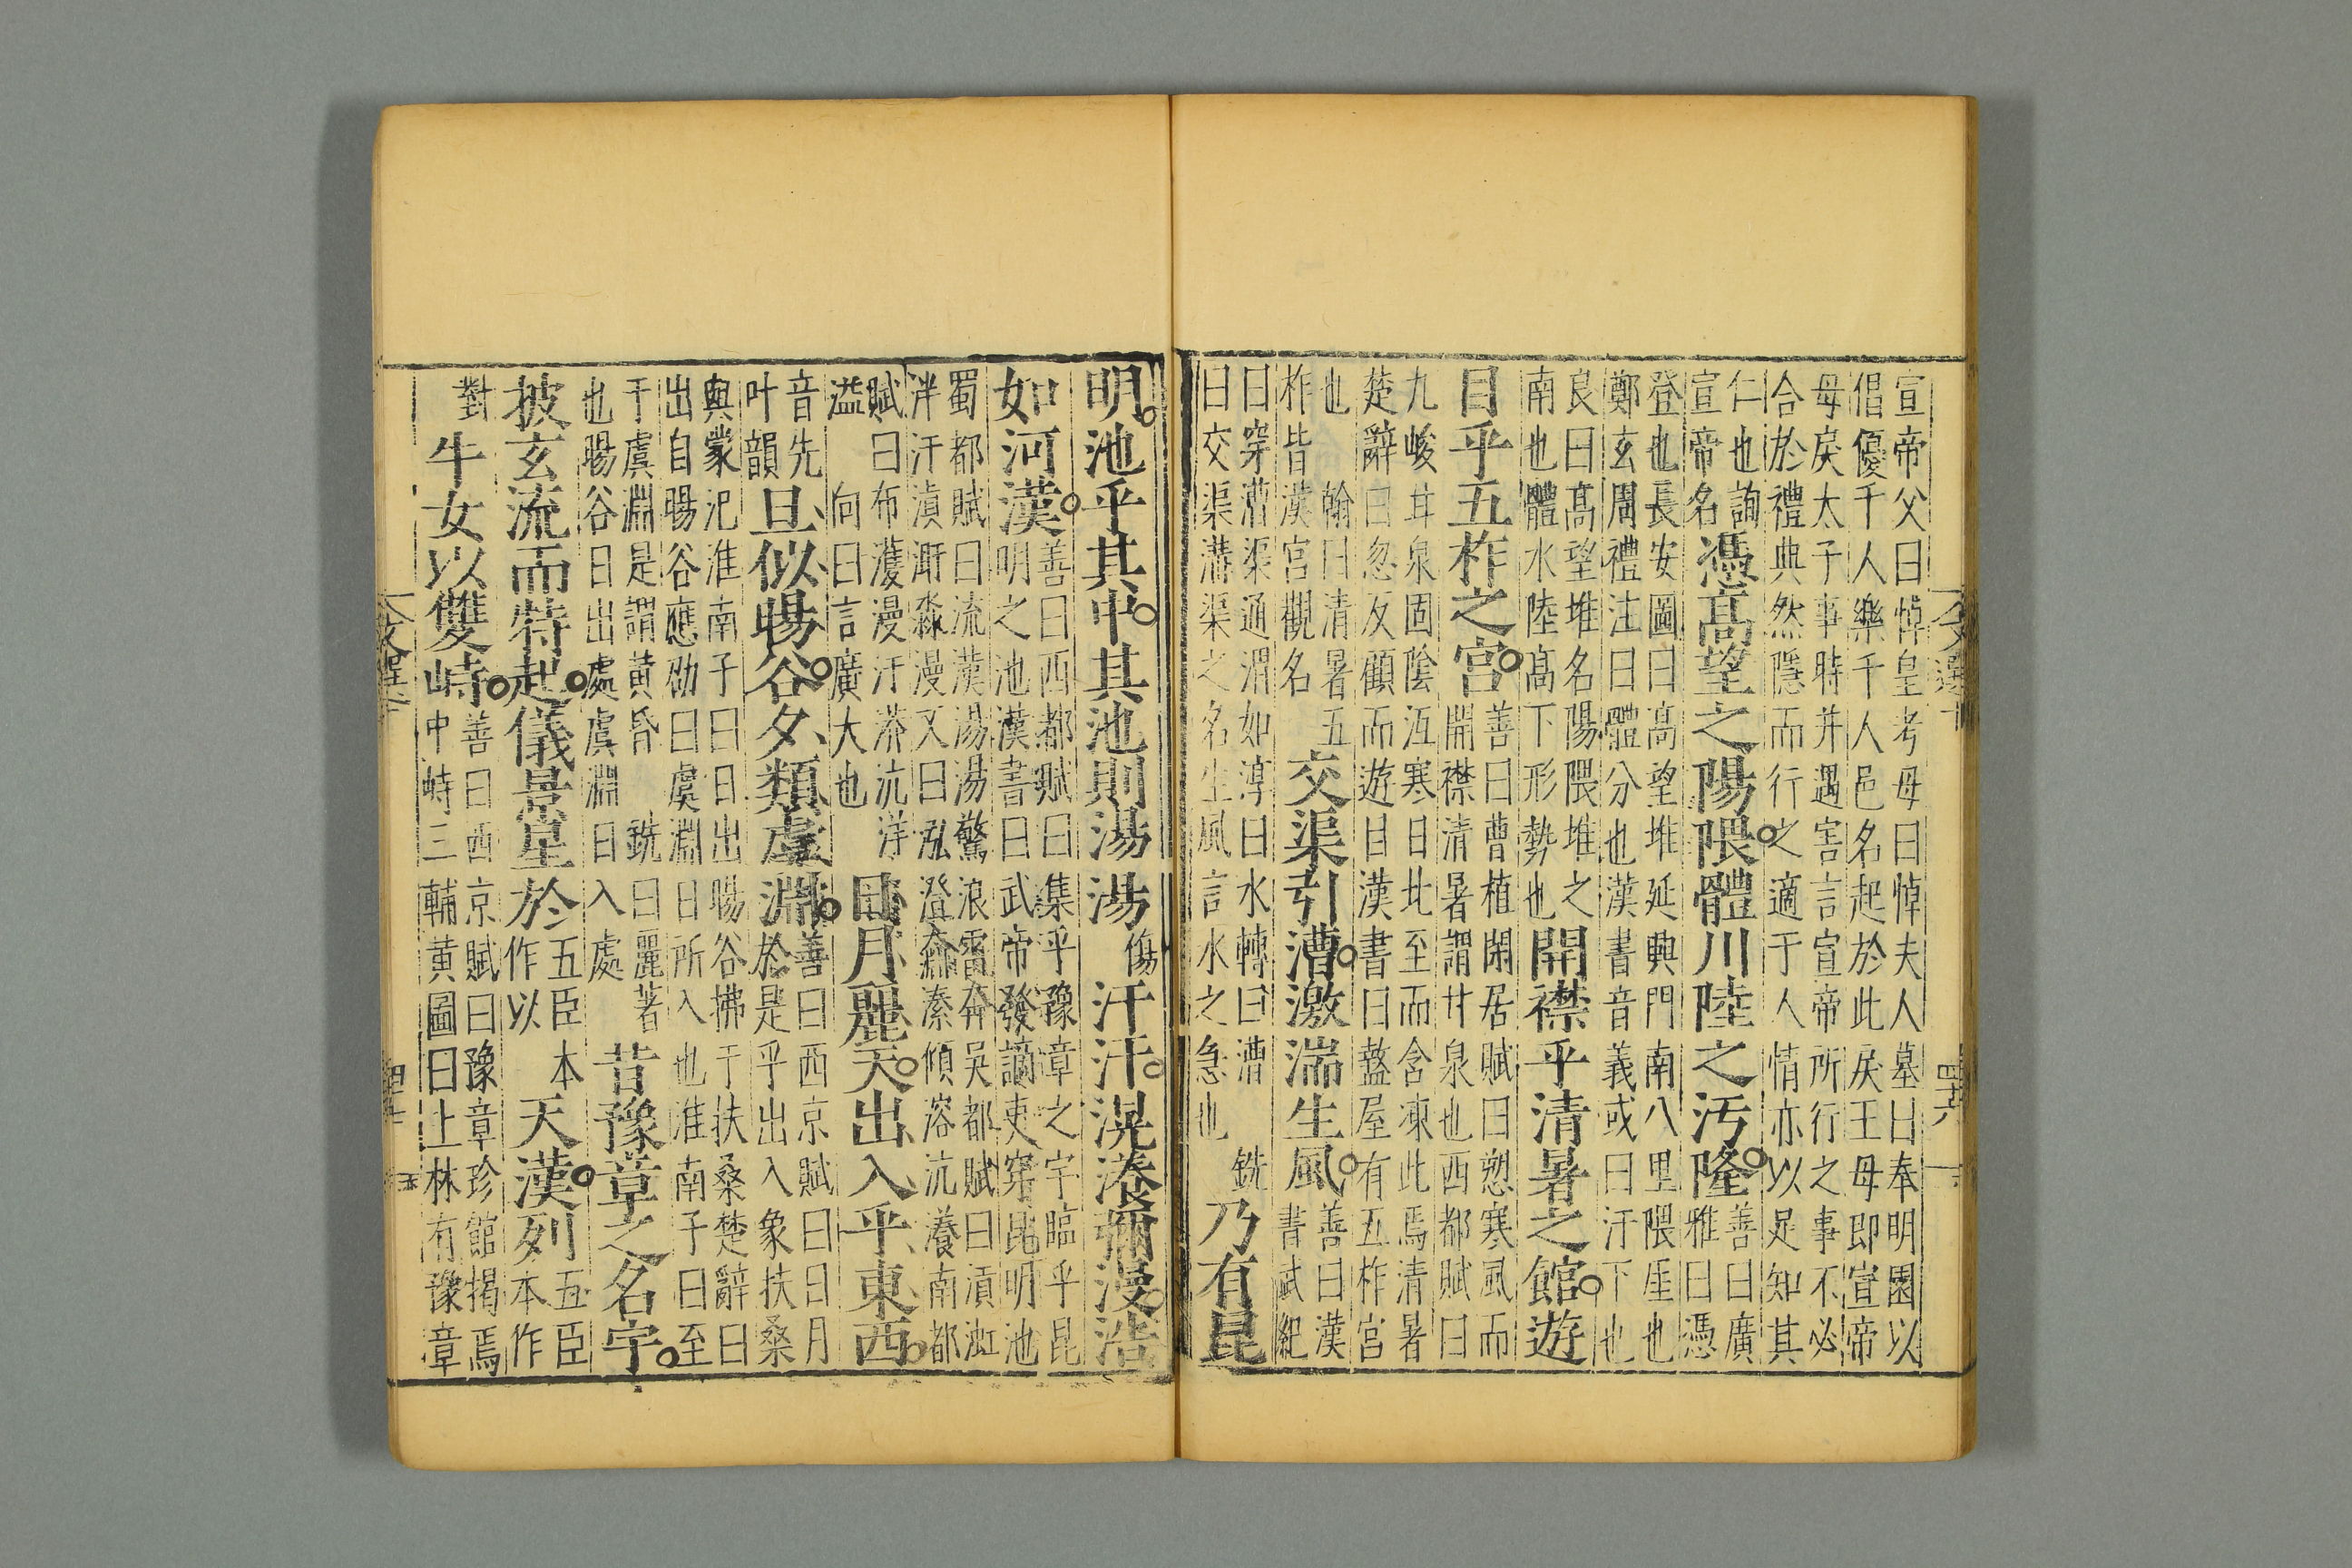 宣帝父曰悼皇考母曰悼夫人墓曰奉明園以
倡優千人樂千人邑名起於此戾王母即宣帝
母戾太子事時并遇害言宣帝所行之事不必
合於禮典然隱而行之適于人情亦以足知其
仁也詢宣帝名憑高望之陽隈體川陸之汚隆善曰廣雅曰憑
登也長安圖曰高望堆延興門南八里隈厓也
鄭玄周禮注曰體分也漢書音義或曰汙下也
良曰高望堆名陽隈堆之南也體水陸高下形勢也開襟乎清暑之館遊
目乎五柞之宮善曰曹植閑居賦曰愬寒風而開襟清暑謂甘泉也西都賦曰
九峻甘泉固陰沍寒日北至而含凍此焉清暑
楚辭曰忽反顧而遊目漢書曰盩屋有五柞宮
也 翰曰清暑五柞皆漢宮觀名交渠引漕激湍生風善曰漢書武紀
曰穿漕渠通渭如淳曰水轉曰漕 銑曰交渠漕渠之名生風言水之急也乃有昆
明池乎其中其池則湯湯傷汗汗滉瀁彌漫浩
如河漢善曰西都賦曰集乎豫章之宇臨乎昆明之池漢書曰武帝發謫吏穿昆明池
蜀都賦曰流漢湯湯驚浪雷奔吳都賦曰澒
泮汗滇淼漫又曰泓澄奫潫傾溶沆瀁南都
賦曰布濩漫汗漭沆洋溢 向曰言廣大也日月麗天出入乎東西
音先叶韻旦似暘谷夕類虞淵善曰西京賦曰日月於是乎出入象扶桑
與蒙汜淮南子曰日出暘谷拂于扶桑楚辭曰
出自暘谷應劭曰虞淵日所入也淮南子曰至
于虞淵是謂黃昏 銑曰麗著也暘谷日出處虞淵日入處昔豫章之名宇
披玄流而特起儀景星於五臣本作以天漢列五臣本作
對牛女以雙峙善曰西京賦曰豫章珍館揭焉中峙三輔黃圖曰上林有豫章